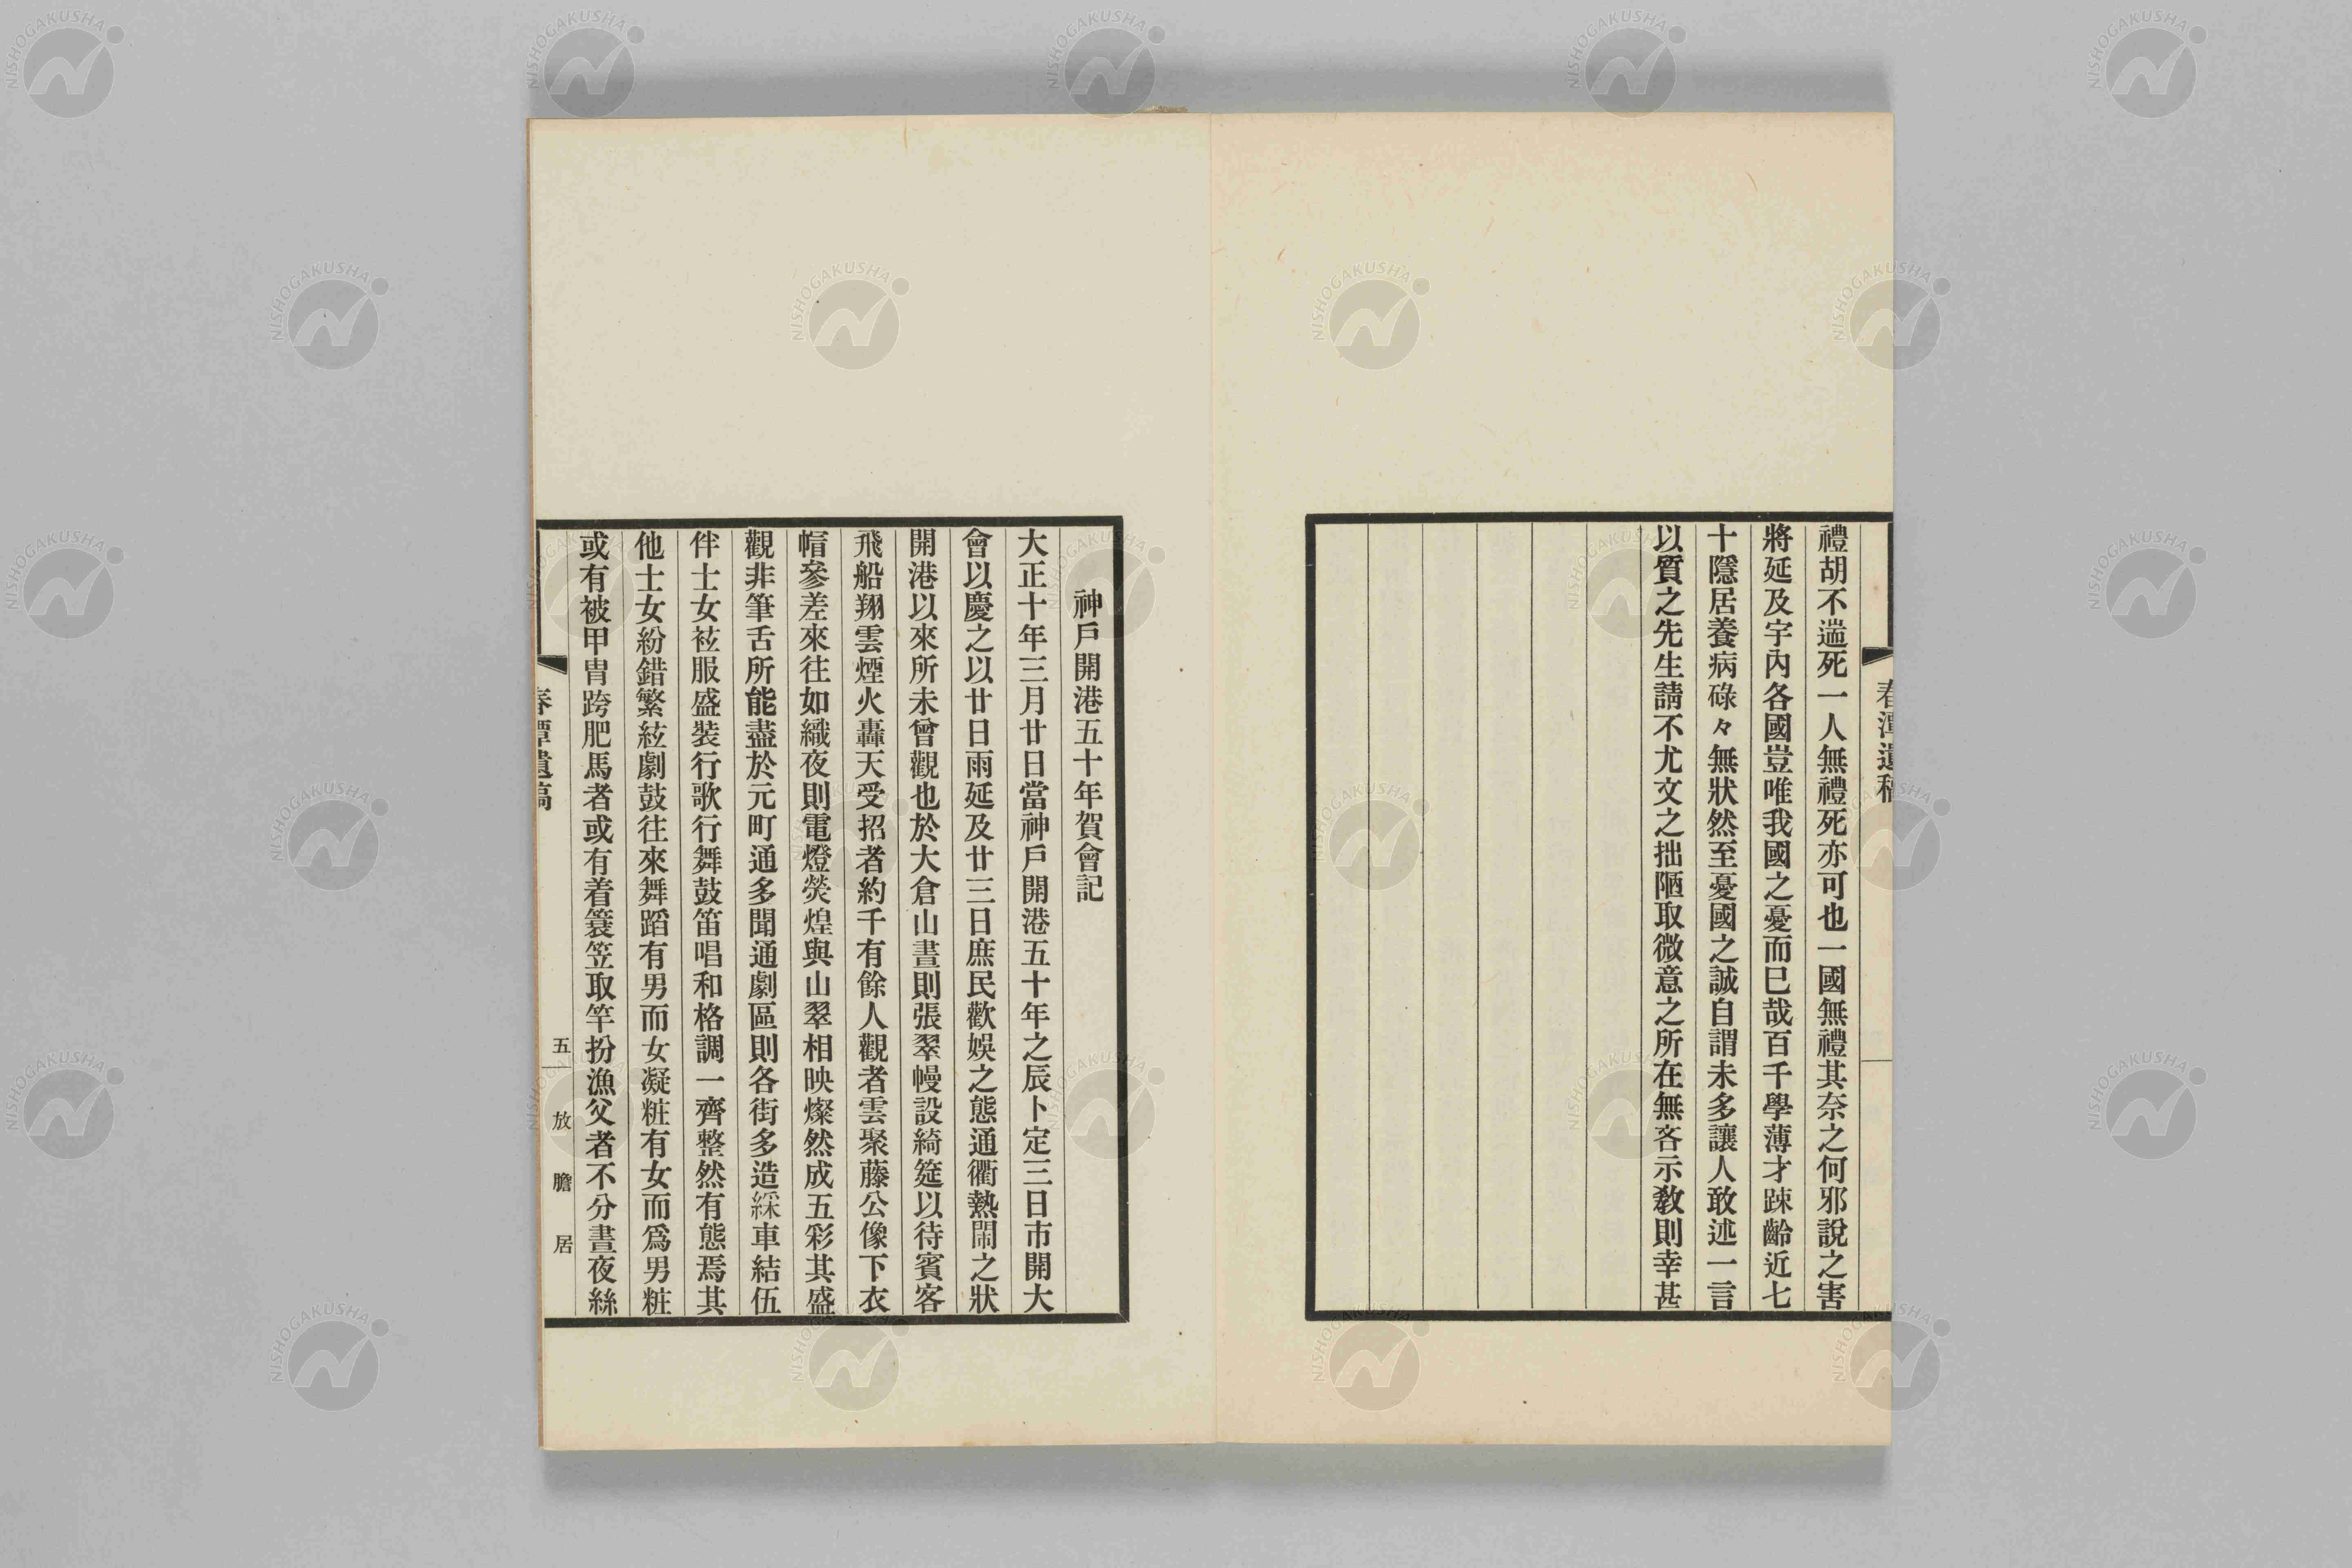 禮胡不遄死一人無禮死亦可也一國無禮其奈之何邪說之害
將延及宇內各國豈唯我國之憂而已哉百千學薄才踈齡近七
十隱居養病碌々無狀然至憂國之誠自謂未多讓人敢述一言
以質之先生請不尤文之拙陋取微意之所在無吝示教則幸甚
春潭遺稿
神戶開港五十年賀會記
大正十年三月廿日當神戶開港五十年之辰卜定三日市開大
會以慶之以廿日雨延及廿三日庶民歡娛之態通衢熱鬧之狀
開港以來所未曾觀也於大倉山晝則張翠幔設綺筵以待賓客
飛船翔雲煙火轟天受招者約千有餘人觀者雲聚藤公像下衣
帽參差來往如織夜則電燈熒煌與山翠相映燦然成五彩其盛
觀非筆舌所能盡於元町通多聞通劇區則各街多造綵車結伍
伴士女袨服盛裝行歌行舞鼓笛唱和格調一齊整然有態焉其
他士女紛錯繁絃劇鼓往來舞蹈有男而女凝粧有女而爲男粧
或有被甲冑跨肥馬者或有着簑笠取竿扮漁父者不分晝夜絲
春潭遺稿
五
放膽居
NISHOGAKUSHA